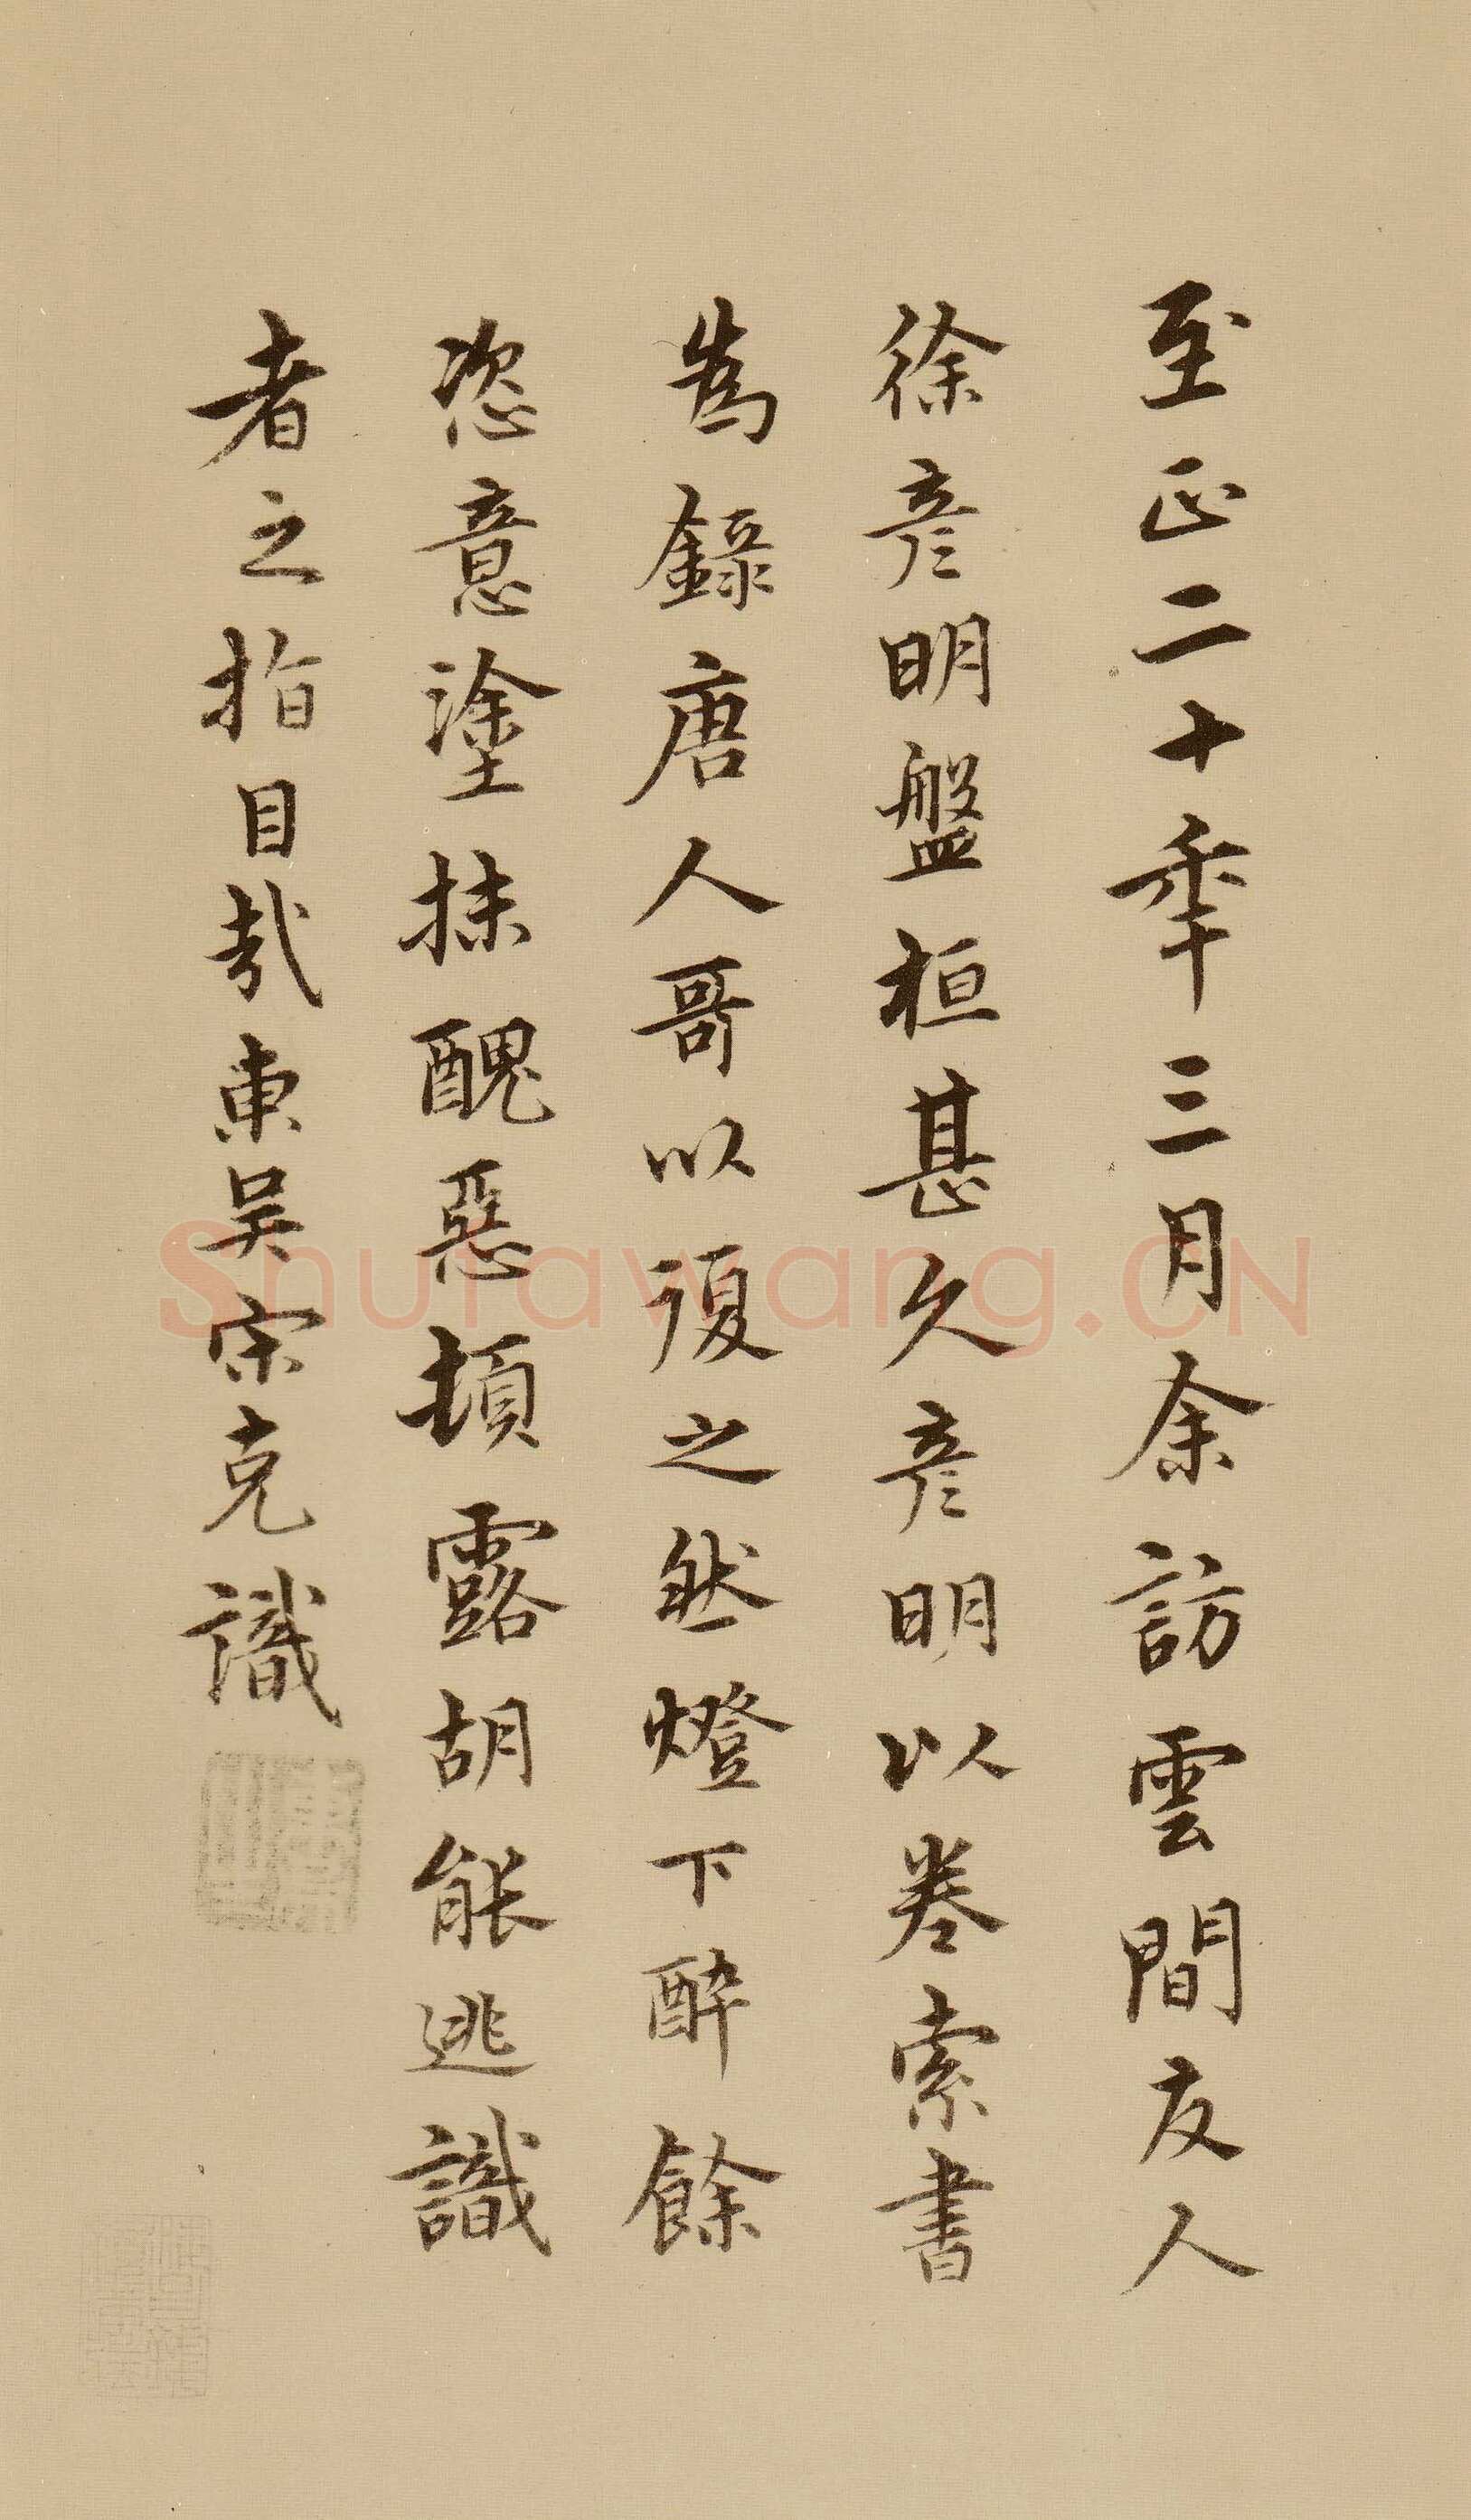 至正二十年三月余訪雲間友人
徐彥明盤桓甚久彥明以卷索書
為錄唐人哥以復之然燈下醉餘
恣意塗抹醜惡頓露胡能逃識
者之指目哉東吳宋克識
Shufawang.CN